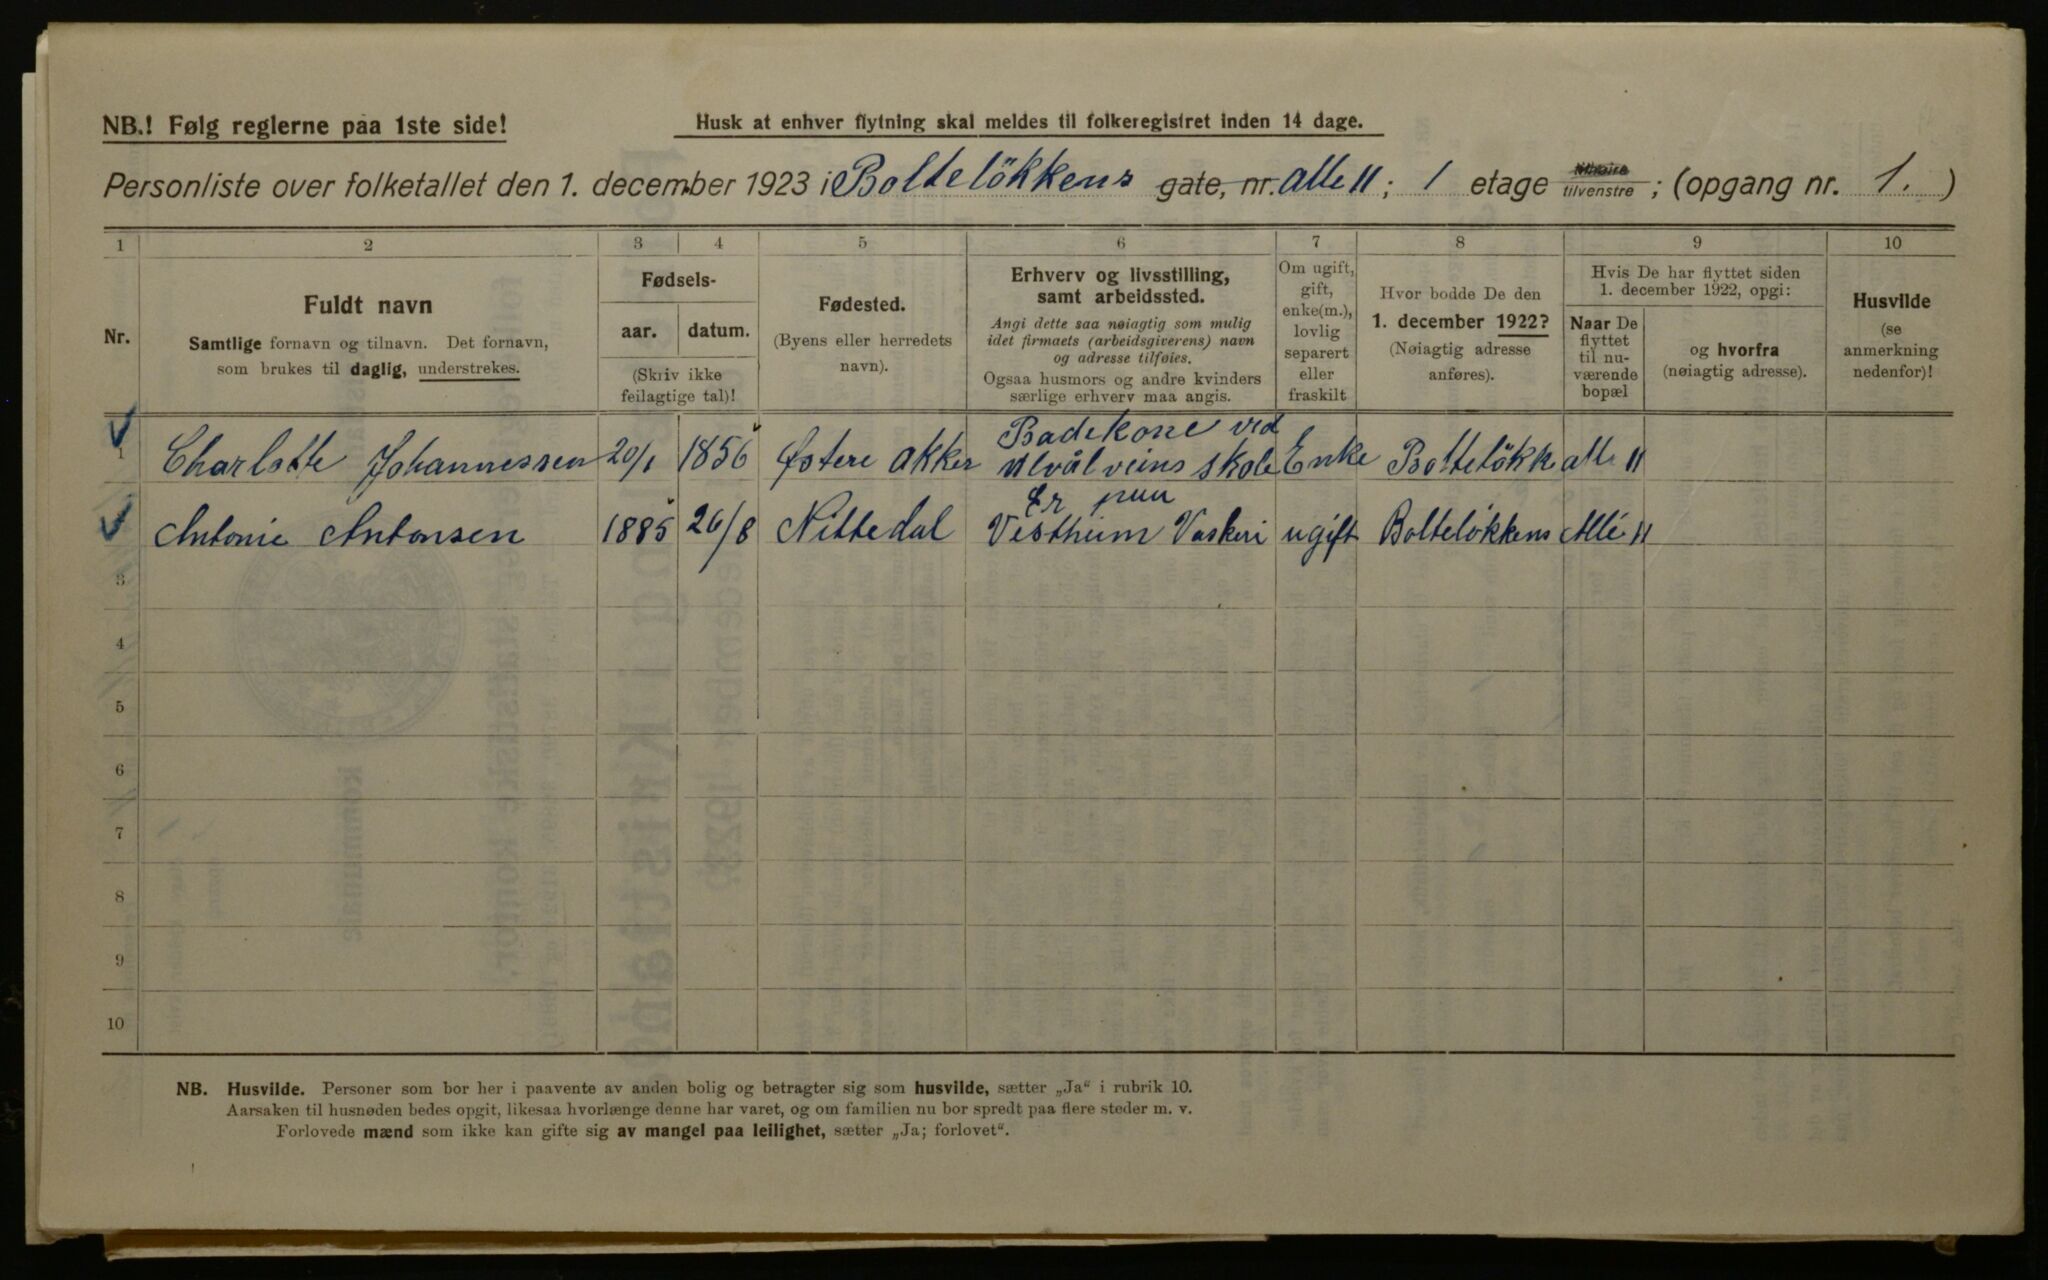 NB.! Følg reglerne paa 1ste side!
Husk at enhver flytning skal meldes til folkeregistret inden 14 dage.
Personliste over folketallet den 1. december 1923 i Bolteløkkens gate, nr. Alle 11; 1 etage tilvenstre; (opgang nr. 1. )
1 2 3 4 5 6 7 8 9 10
Nr.
Fuldt navn
Samtlige fornavn og tilnavn. Det fornavn,
som brukes til daglig, understrekes.
Fødsels-
aar. datum.
(Skriv ikke
feilagtige tal)!
Fødested.
(Byens eller herredets
navn).
Erhverv og livsstilling,
samt arbeidssted.
Angi dette saa nøiagtig som mulig
idet firmaets (arbeidsgiverens) navn
og adresse tilføies.
Ogsaa husmors og andre kvinders
særlige erhverv maa angis.
Om ugift,
gift,
enke(m.),
lovlig
separert
eller
fraskilt
Hvor bodde De den
1. december 1922?
(Nøiagtig adresse
anføres).
Hvis De har flyttet siden
1. december 1922, opgi:
Naar De
flyttet
til nu-
værende
bopæl
og hvorfra
(nøiagtig adresse).
Husvilde
(se
anmerkning
nedenfor)!
Badekone ved
1 Charlotte Johannessen 20/1 1856 Østere Akker Ulvålveins skole Enke Bolteløkk alle 11
Er
Antonie Antonsen 1885 26/8 Nittedal Vestheim Vaskeri ugift Bolteløkkens Allé 11
3
4
5
6
7
8
9
10
NB. Husvilde. Personer som bor her i paavente av anden bolig og betragter sig som husvilde, sætter „Ja“ i rubrik 10.
Aarsaken til husnøden bedes opgit, likesaa hvorlænge denne har varet, og om familien nu bor spredt paa flere steder m. v.
Forlovede mænd som ikke kan gifte sig av mangel paa leilighet, sætter „Ja; forlovet“.